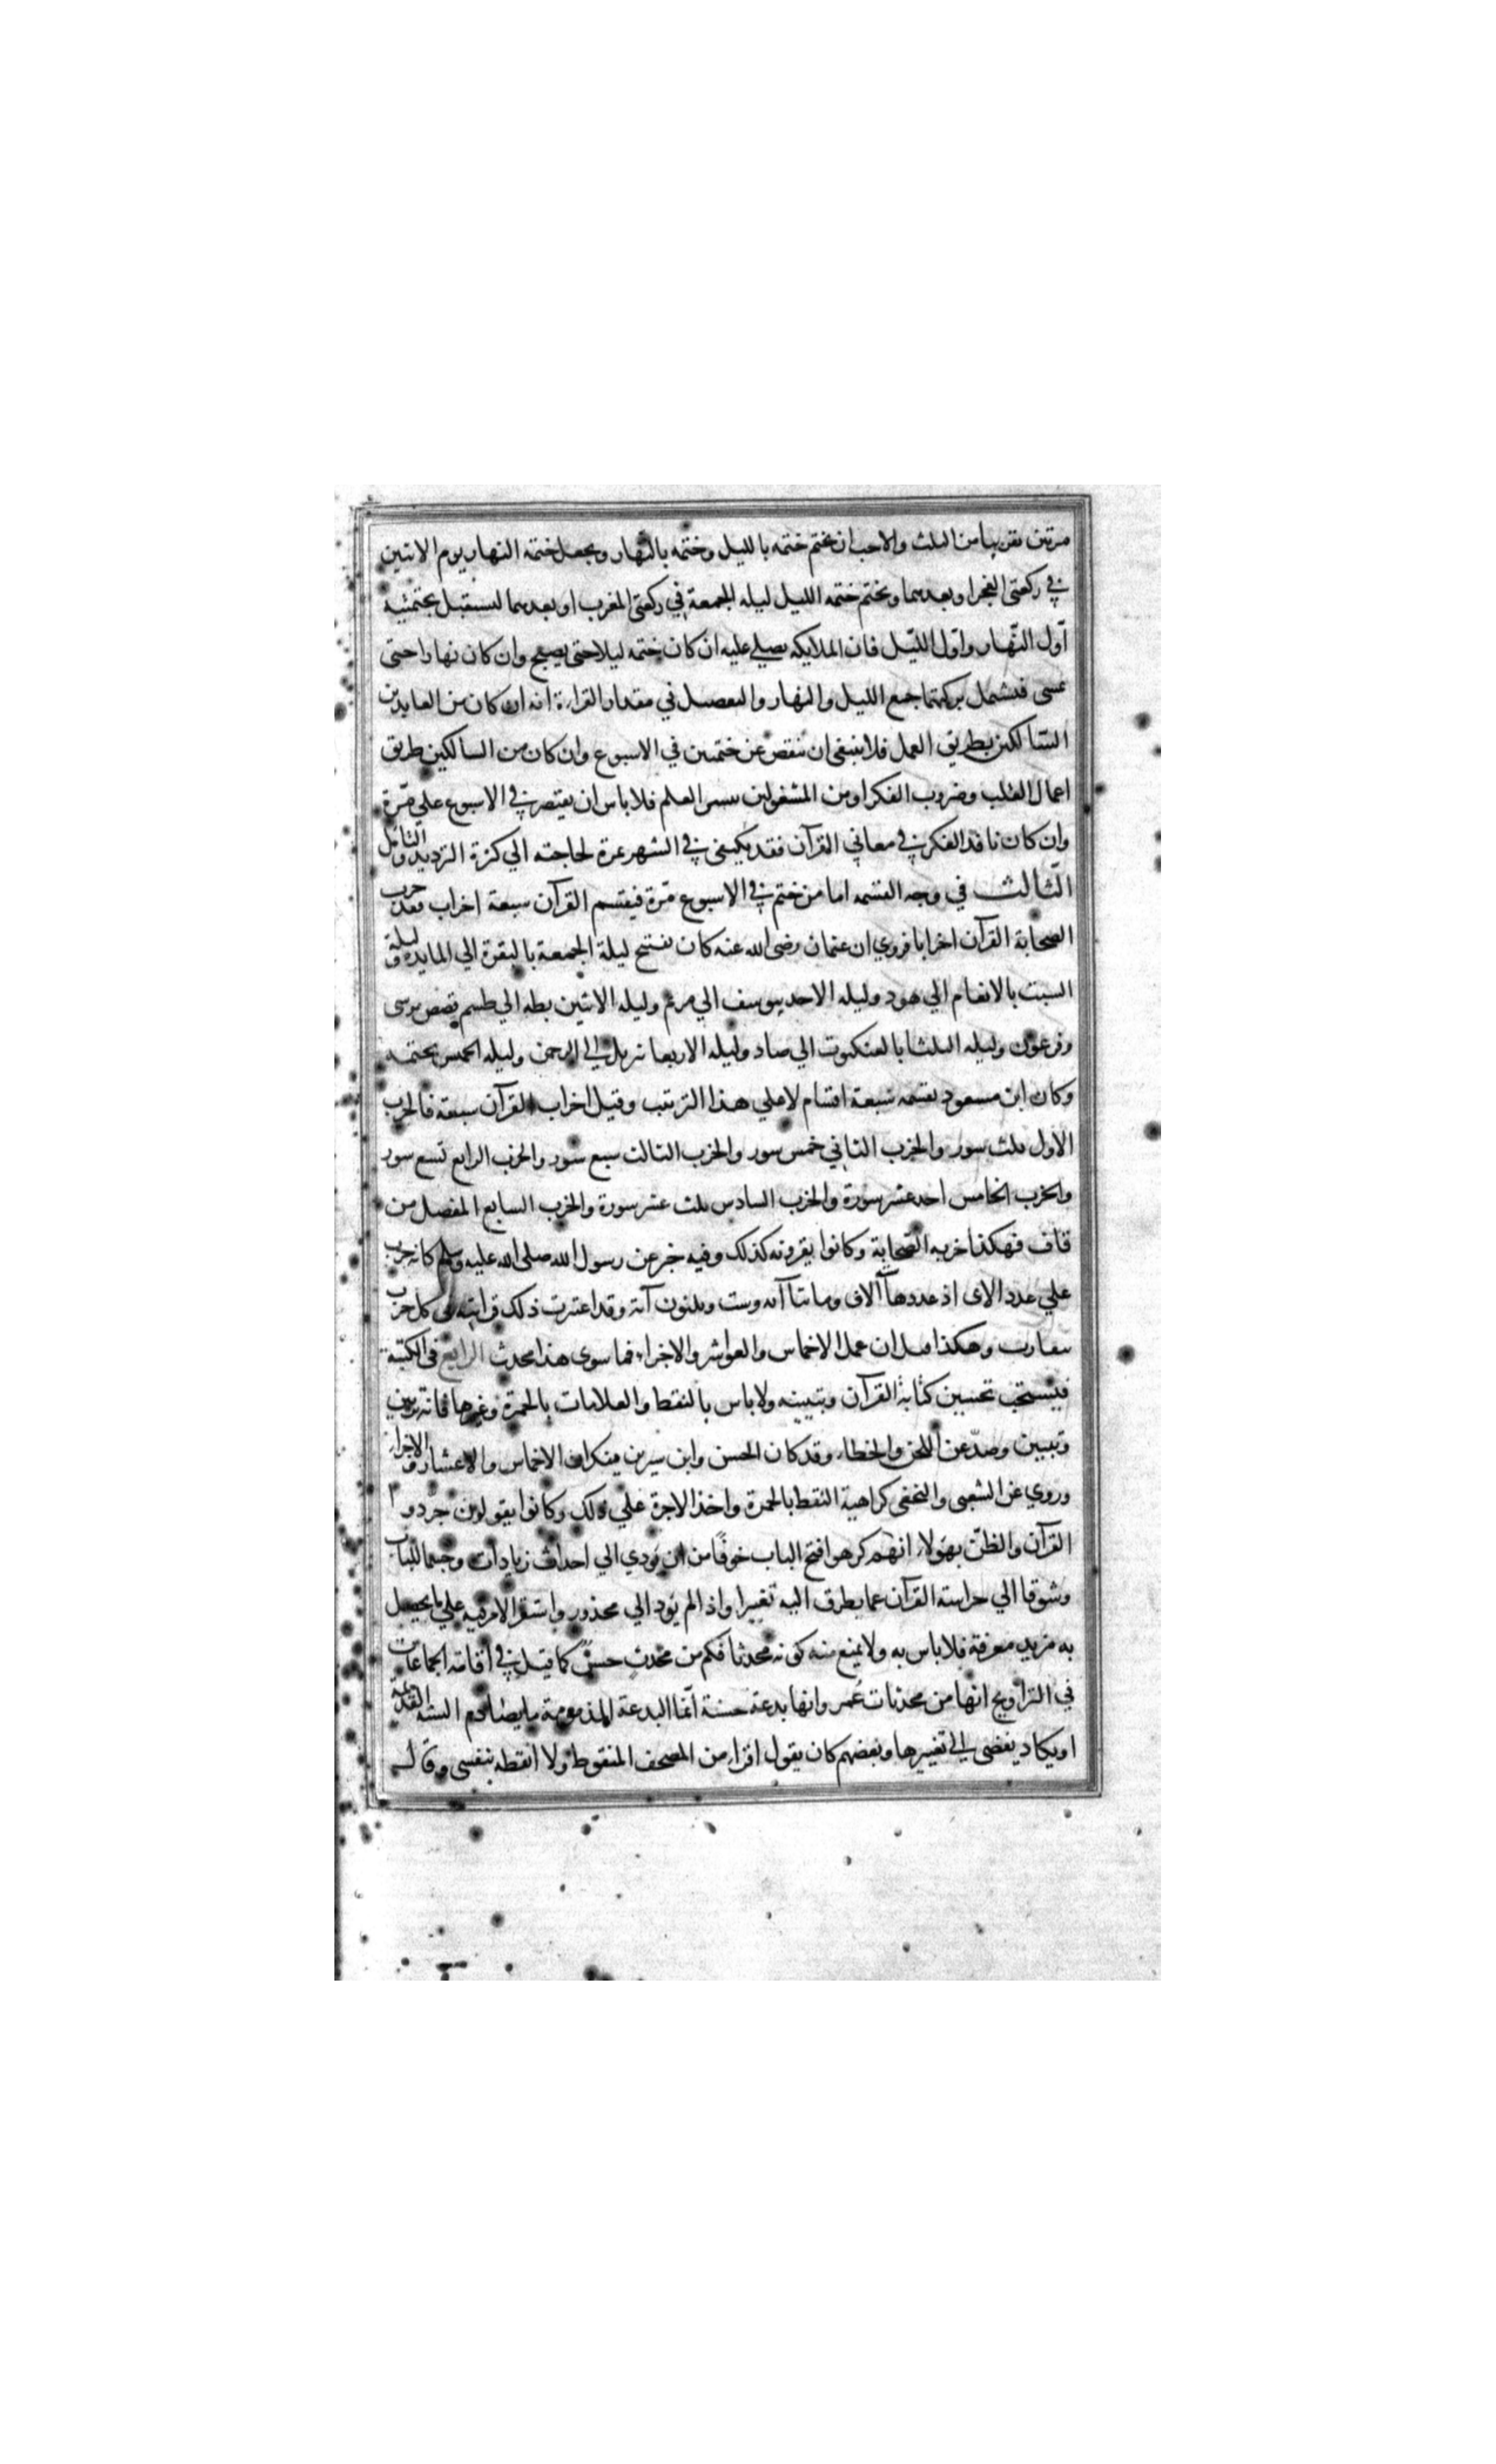 مرتين تقريبا من الثلث والاحب ان يختم ختمه بالليل وختمه بالنهار ويجعل ختمة النهار يوم الاثنين
في ركعتي الفجر او بعدهما ويختم ختمه الليل ليله الجمعة في ركعتي المغرب او بعدهما ليستقبل بختمتيه
أول النّهار واوّل اللّيل فان الملايكه يصلي عليه ان كان ختمه ليلا حتى يصبح وان كان نهارا حتى
يمسى فيشمل بركتهما جميع الليل والنهار والتفصيل في مقدار القراءة انه ان كان من العابدين
السّالكين بطريق العمل فلا ينبغي ان ينقص عن ختمين في الاسبوع وان كان من السالكين طريق
اعمال القلب وضروب الفكر او من المشغولين بنشر العلم فلا باس ان يقتصر في الاسبوع على مرّة
وان كان نافذ الفكر في معاني القرآن فقد يكتفى في الشهر بمرة لحاجته الي كثرة الترديد والتامل
الثّالث في وجه القسمه اما من ختم في الاسبوع مرّة فيقسم القرآن سبعة احزاب فقد حزب
الصحابة القرآن احزابا فروي ان عثمان رضى الله عنه كان يفتتح ليلة الجمعة بالبقرة الي المايده وليلة
السبت بالانعام الي هود وليله الاحد بيوسف الي مريم وليله الاثنين بطه الي طسم قصص موسى
وفرعون وليله الثلثا بالعنكبوت الي صاد وليله الاربعا تنزيل الي الرحمن وليله الخمس يختمه
وكان ابن مسعود يقسمه سبعة اقسام لا على هذا الترتيب وقيل احزاب القرآن سبعة فالحزب
الاول ثلث سور والحزب الثاني خمس سور والحزب الثالث سبع سور والحزب الرابع تسع سور
والحزب الخامس احد عشر سورة والحزب السادس ثلث عشر سورة والحزب السابع المفصل من
قاف فهكذا حزبه الصّحابة وكانوا يقرونه كذلك وفيه خبر عن رسول الله صلى الله عليه وسلم كانه حزب
علي عدد الاى اذ عددها آلاف وماتتا آيه وست وثلثون آية وقد اعتبرت ذلك في كل حزب
وهكذا قبل ان عمل الاخماس والعواشر والاجزاء فما سوى هذا محدث الرابع في الكتبة
فيستحب تحسين كتابة القرآن وتبيينه ولا باس بالنقط والعلامات بالحمرة وغيرها فانه تزيين
وتبيين وصدّ عن اللحن والخطاء وقد كان الحسن وابن سيرين ينكران الاخماس والاعشار والاجزاء
وروي عن الشعبى والنخعى كراهية النقط بالحمرة واخذ الاجرة علي ذلك وكانوا يقولون جردوا
القرآن والظنّ بهولاء انهم كرهوا فتح الباب خوفًا من ان يودي الي احداث زيادات وحسما للباب
وشوقا الي حراسة القرآن عما يطرق اليه تغييرا واذا لم يود الي محذور واستقر الامر فيه علي ما يحصل
به مزيد معرفة فلا باس به ولا يمنع منه كونه محدثا فكم من محدثٍ حسنٌ كما قيل في اقامة الجماعات
في التراويح انها من محدثات عُمر وانها بدعة حسنة انّما البدعة المذمومة ما يصادم السنه القديمة
او يكاد يفضى الي تغييرها وبعضهم كان يقول اقراء من المصحف المنقوط ولا انقطه بنفسى وقال